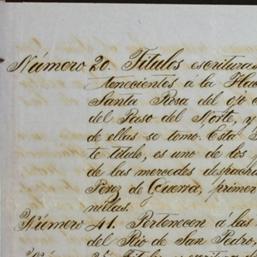 Número 20. Titulos escrituras
tenecientes á la Hac
Santa Rosa del ojo c
del Paso del Norte, y
de ellas se tomo. Esta
te titulo, es uno de los
de las mercedes despacha
Perez de Guerra, primer
nillas.
Número 41. Pertenecen á las
del Rio de San Pedro,